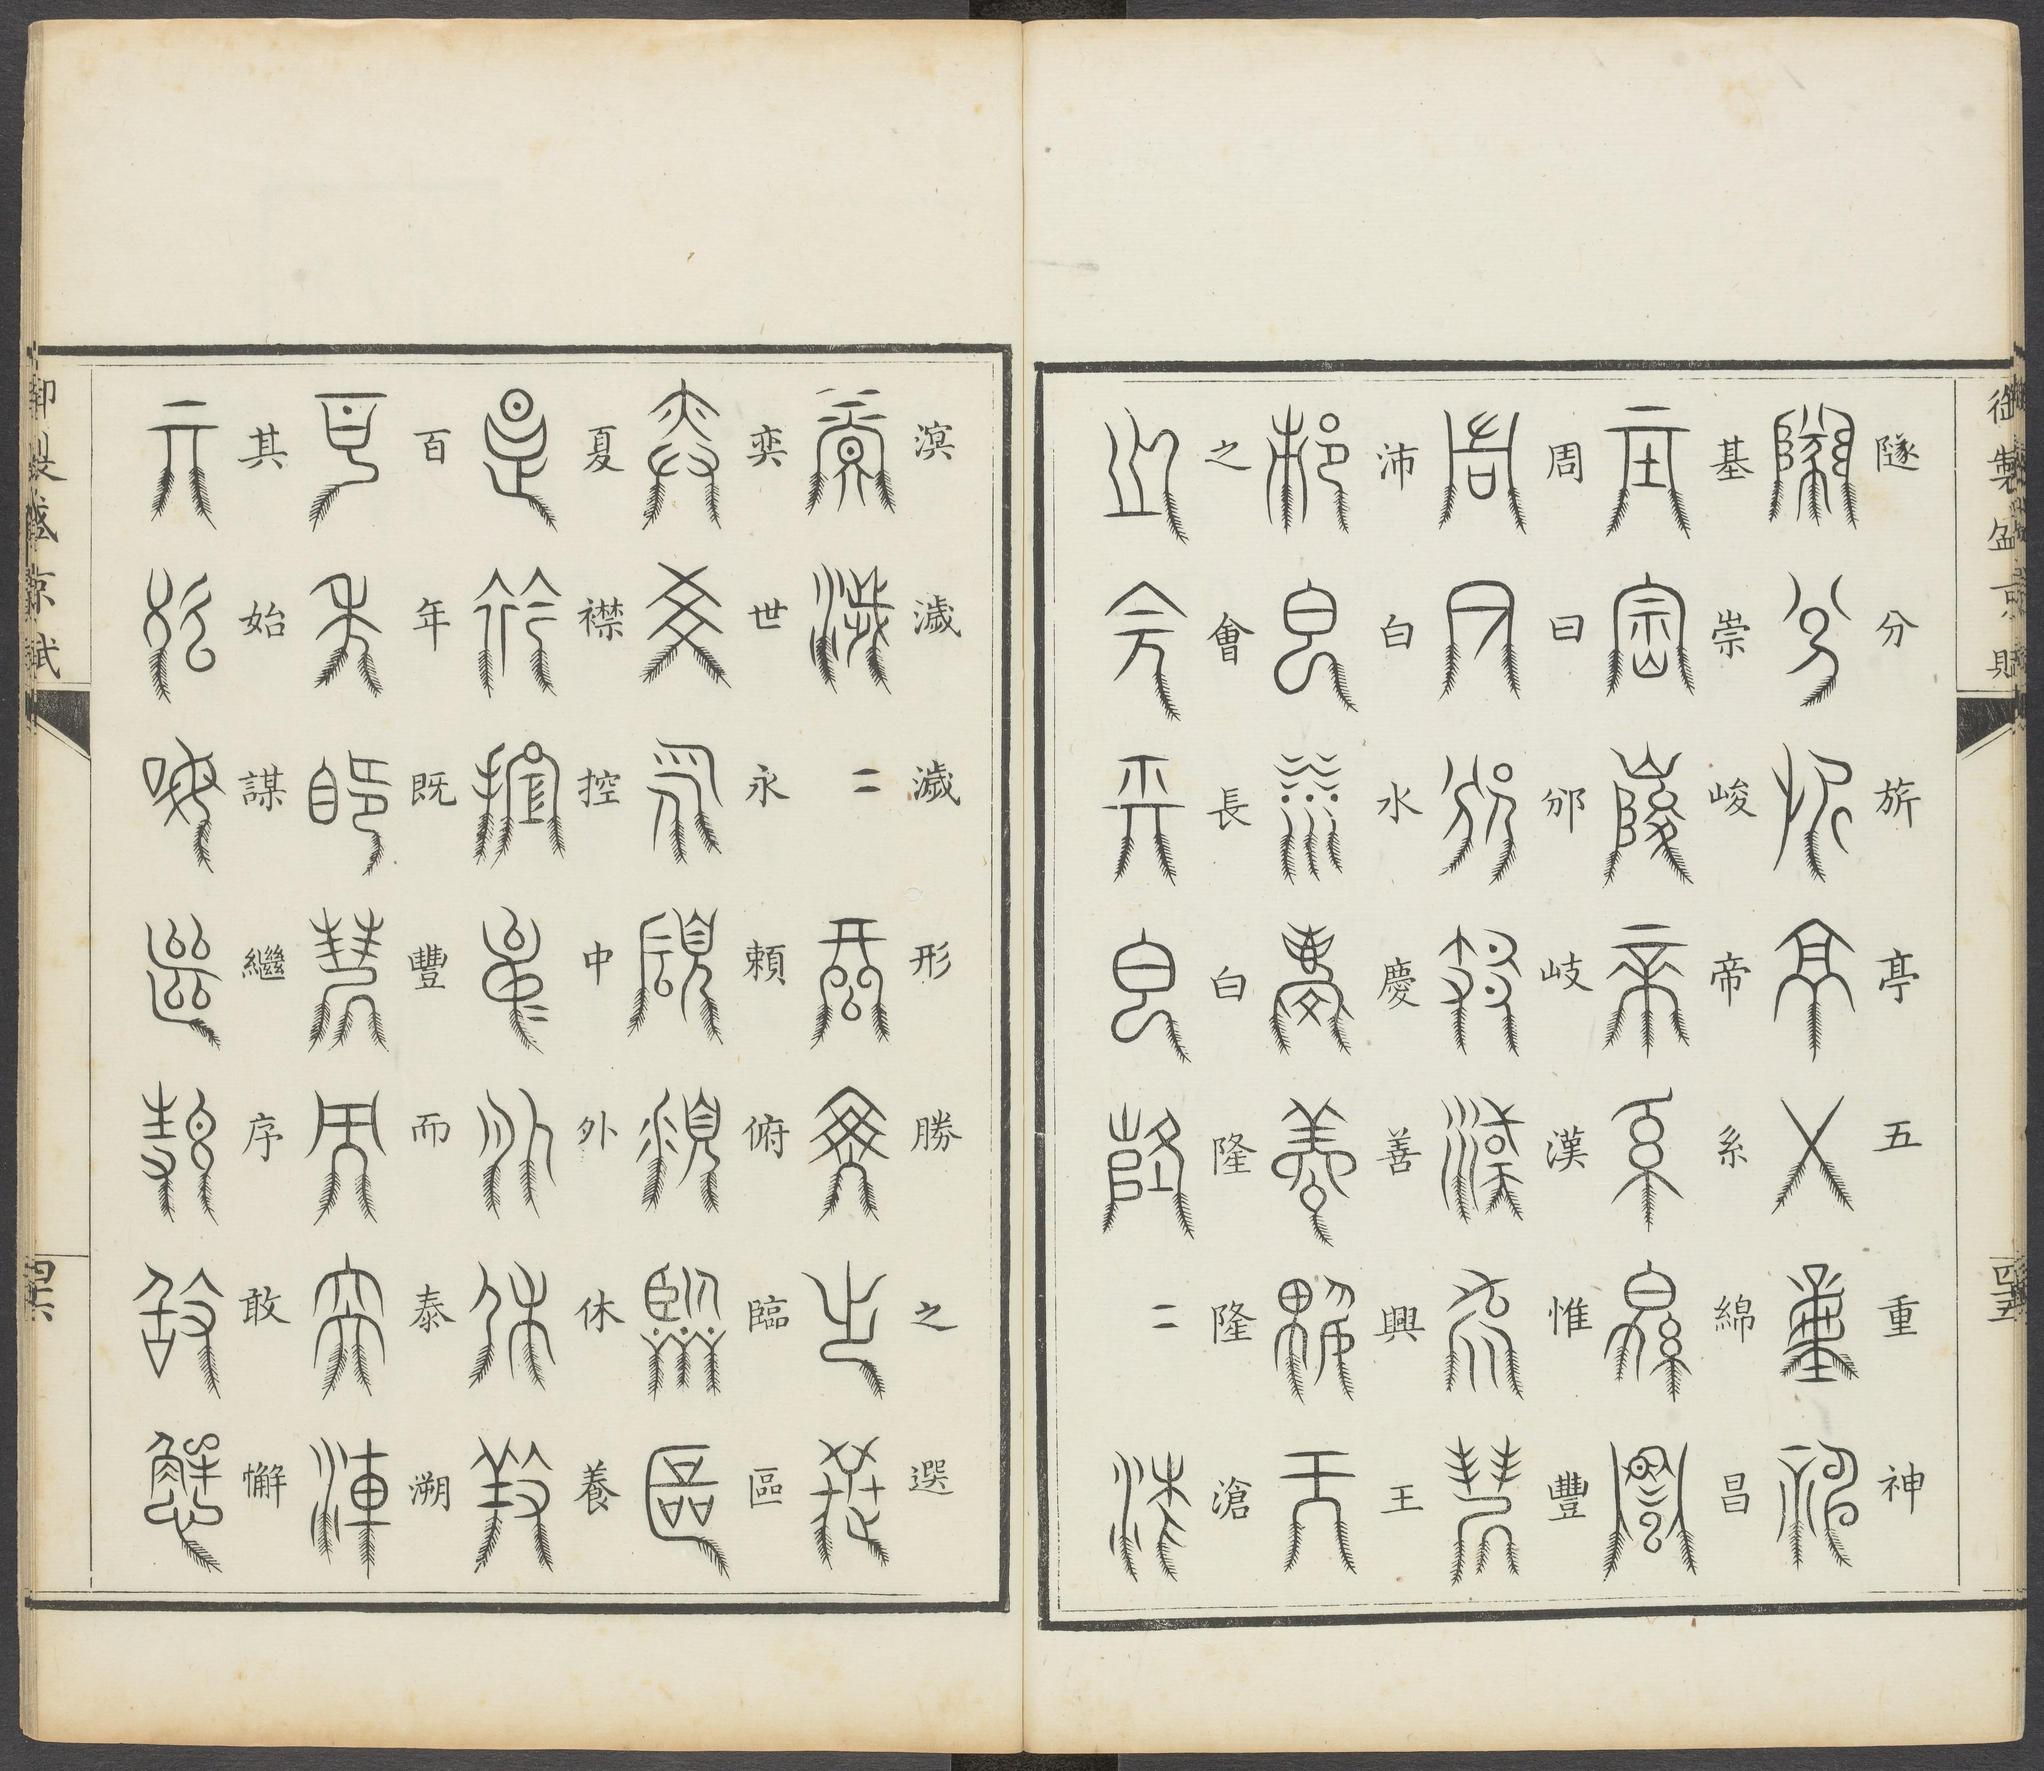 御製盛京賦
隧分旂亭五重神
基崇峻帝系綿昌
周曰邠岐漢惟豐
沛白水慶善興王
之會長白隆隆滄
溟濊濊形勝之選
奕世永賴俯臨區
夏襟控中外休養
百年既豐而泰溯
其始謀繼序敢懈
御製盛京賦